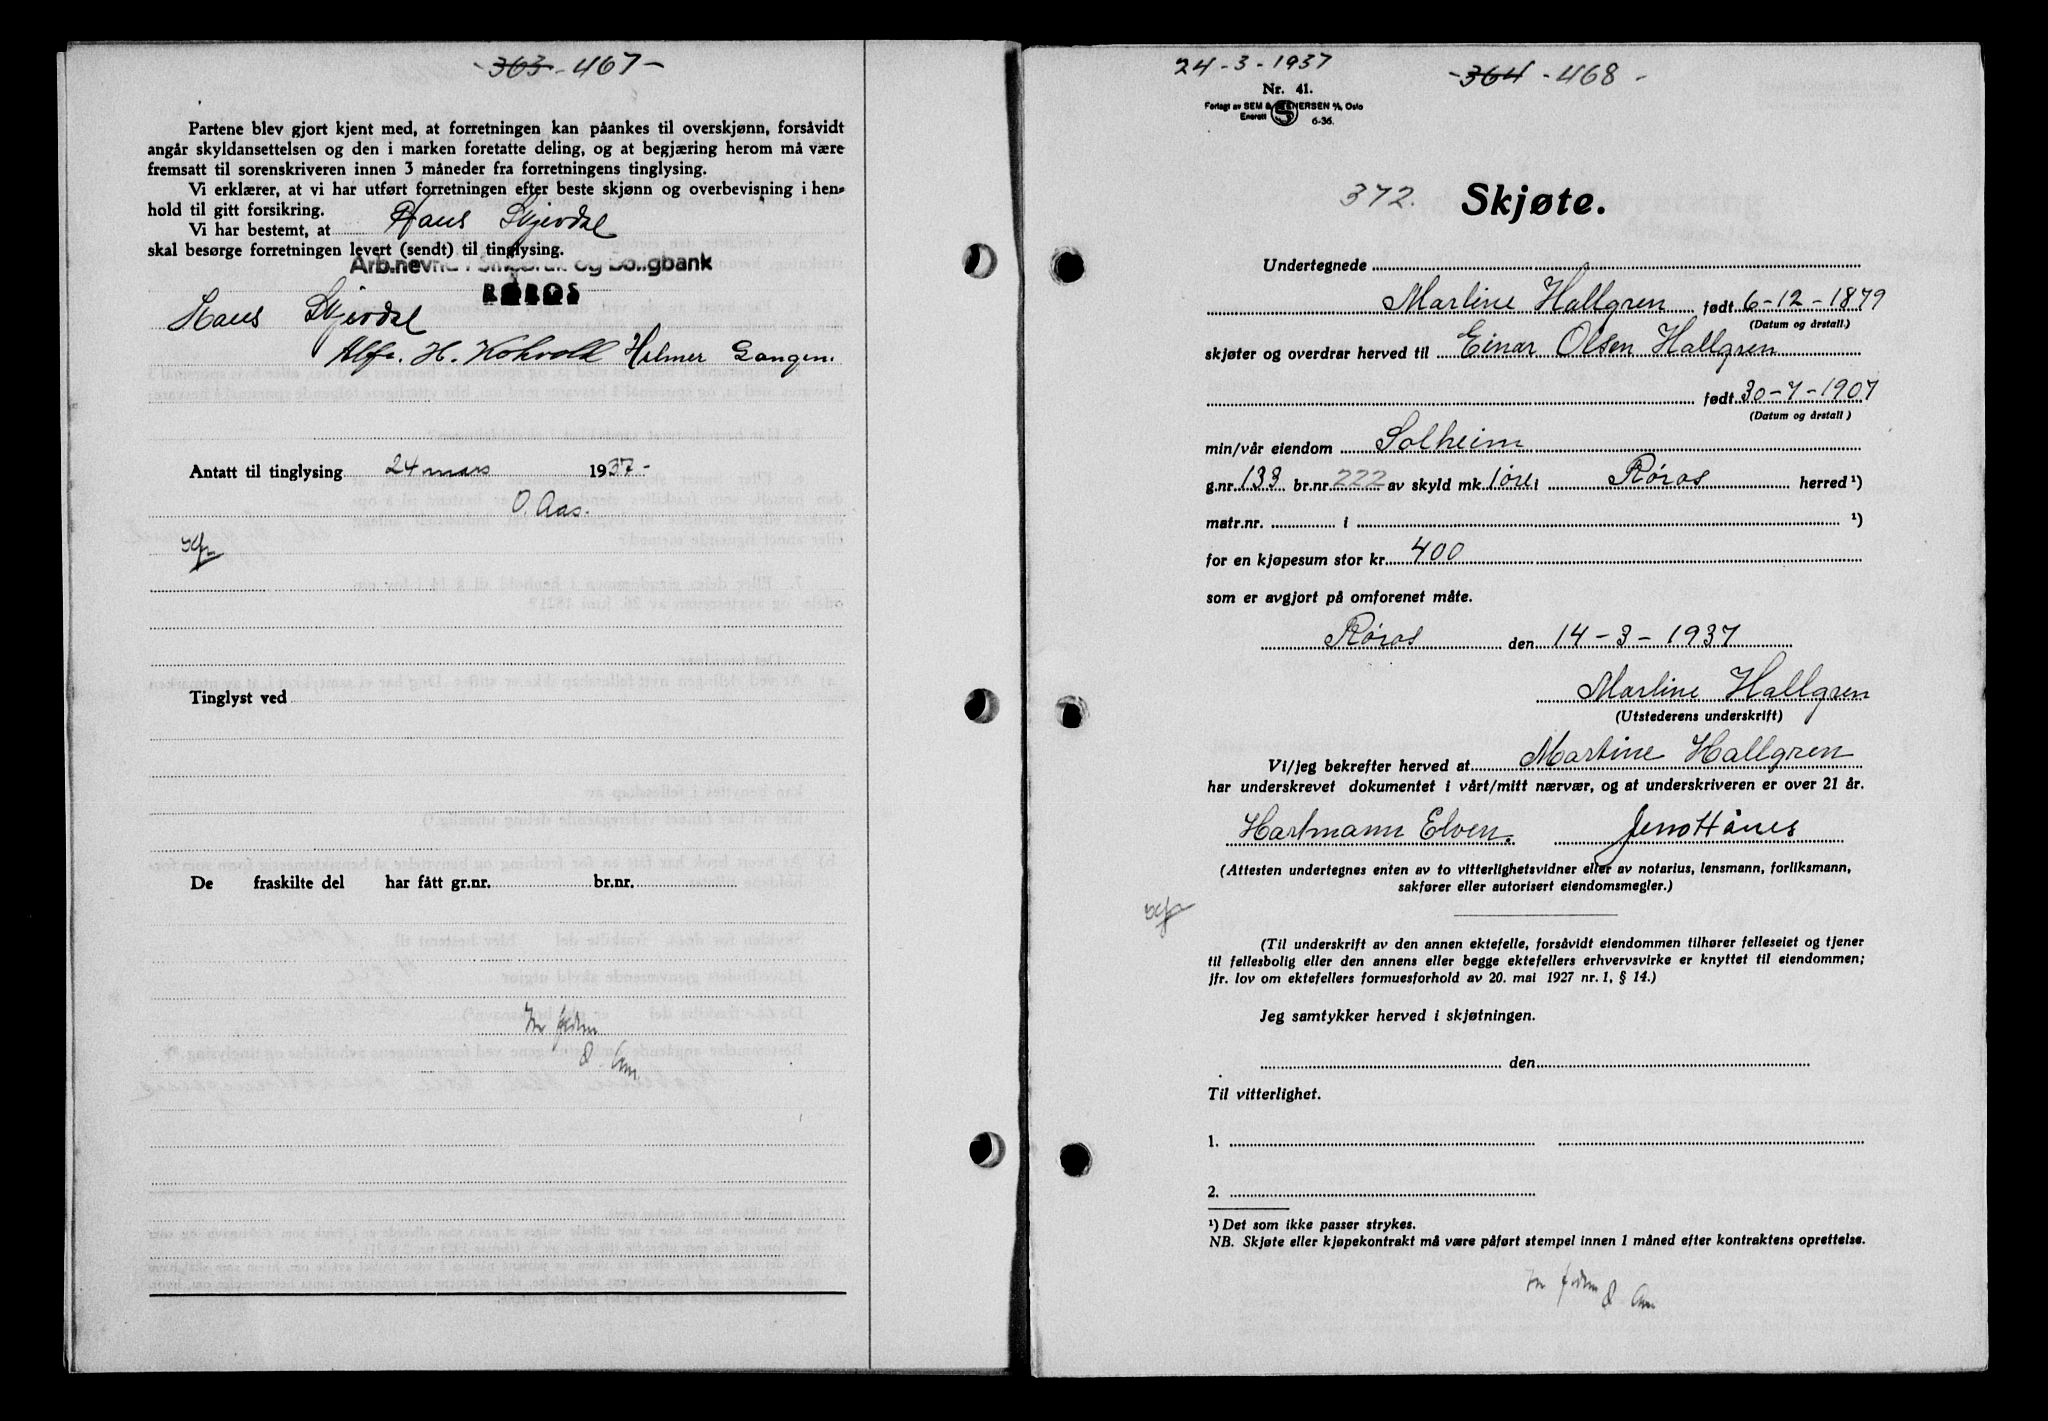 -363- 467-
Partene blev gjort kjent med, at forretningen kan påankes til overskjønn, forsåvidt
angår skyldansettelsen og den i marken foretatte deling, og at begjæring herom må være
fremsatt til sorenskriveren innen 3 måneder fra forretningens tinglysing.
Vi erklærer, at vi har utført forretningen efter beste skjønn og overbevisning i hen-
hold til gitt forsikring.
Vi har bestemt, at Hans Skjevdal
skal besørge forretningen levert (sendt) til tinglysing.
Arb.nevnd i Småbruk og Boligbank
RØROS
Hans Skjevdal
Alfr. H. Kokvold Hilmer Gangen.
Antatt til tinglysing 24 mars 1937-
O. Aas.
Tinglyst ved
De fraskilte del har fått gr.nr. br.nr.
24-3-1937
-364- 468-
Nr. 41.
Forlagt av SEM & STENERSEN A/S, Oslo
Enerett
6-36.
372. Skjøte.
Undertegnede
Martine Hallgren født 6-12-1879
(Datum og årstall.)
skjøter og overdrar herved til Einar Olsen Hallgren
født 30-7-1907
(Datum og årstall)
min/vår eiendom Solheim
g.nr 133 br.nr 222 av skyld mk 1 øre i Røros herred ¹)
matr.nr. i ¹)
for en kjøpesum stor kr 400
som er avgjort på omforenet måte.
Røros den 14-3-1937
Martine Hallgren
(Utstederens underskrift)
Vi/jeg bekrefter herved at Martine Hallgren
har underskrevet dokumentet i vårt/mitt nærvær, og at underskriveren er over 21 år.
Hartmann Elven. Jens Hånes
(Attesten undertegnes enten av to vitterlighetsvidner eller av notarius, lensmann, forliksmann,
sakfører eller autorisert eiendomsmegler.)
(Til underskrift av den annen ektefelle, forsåvidt eiendommen tilhører felleseiet og tjener
til fellesbolig eller den annens eller begge ektefellers erhvervsvirke er knyttet til eiendommen;
jfr. lov om ektefellers formuesforhold av 20. mai 1927 nr. 1, § 14.)
Jeg samtykker herved i skjøtningen.
den
Til vitterlighet.
1.
2.
¹) Det som ikke passer strykes.
NB. Skjøte eller kjøpekontrakt må være påført stempel innen 1 måned efter kontraktens oprettelse.